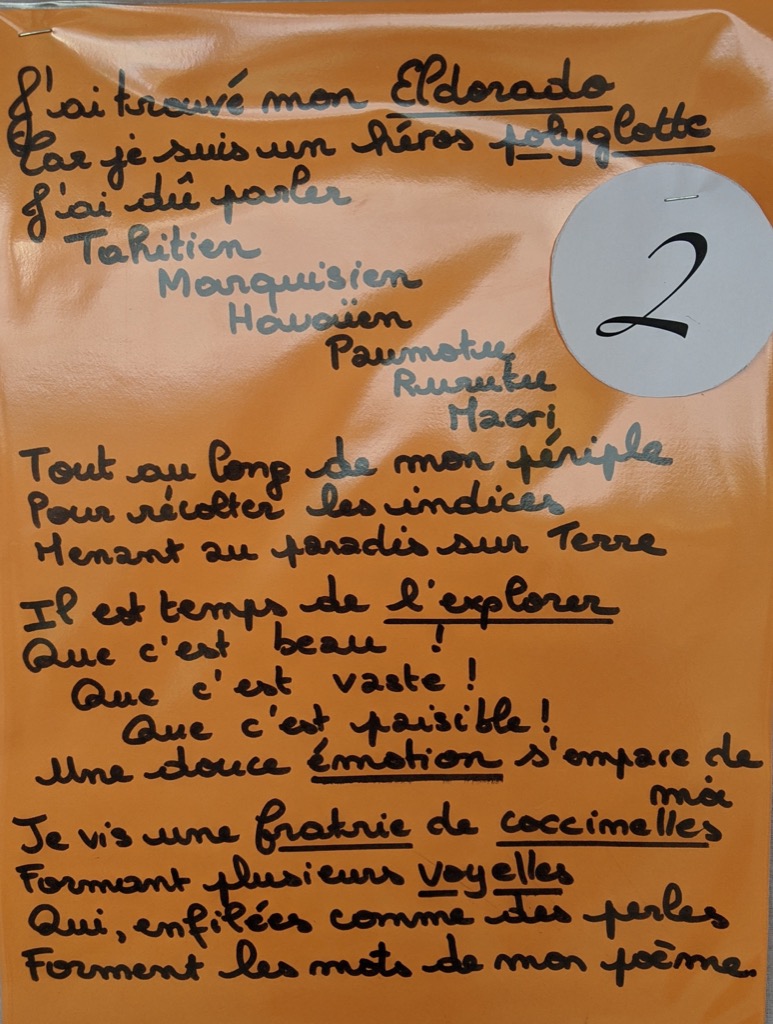 J'ai trouvé mon Eldorado
Car je suis un héros polyglotte
J'ai dû parler
Tahitien
2
Marquisien
Havaïen
Paumotu
Rurutu
Maori
Tout au long de mon périple
Pour récolter les indices
Menant au paradis sur Terre
Il est temps de l'explorer
Que c'est beau !
Que c'est vaste !
Que c'est paisible !
Une douce émotion s'empare de
moi
Je vis une fratrie de coccinelles
Formant plusieurs voyelles
Qui, enfilées comme des perles
Forment les mots de mon poème.